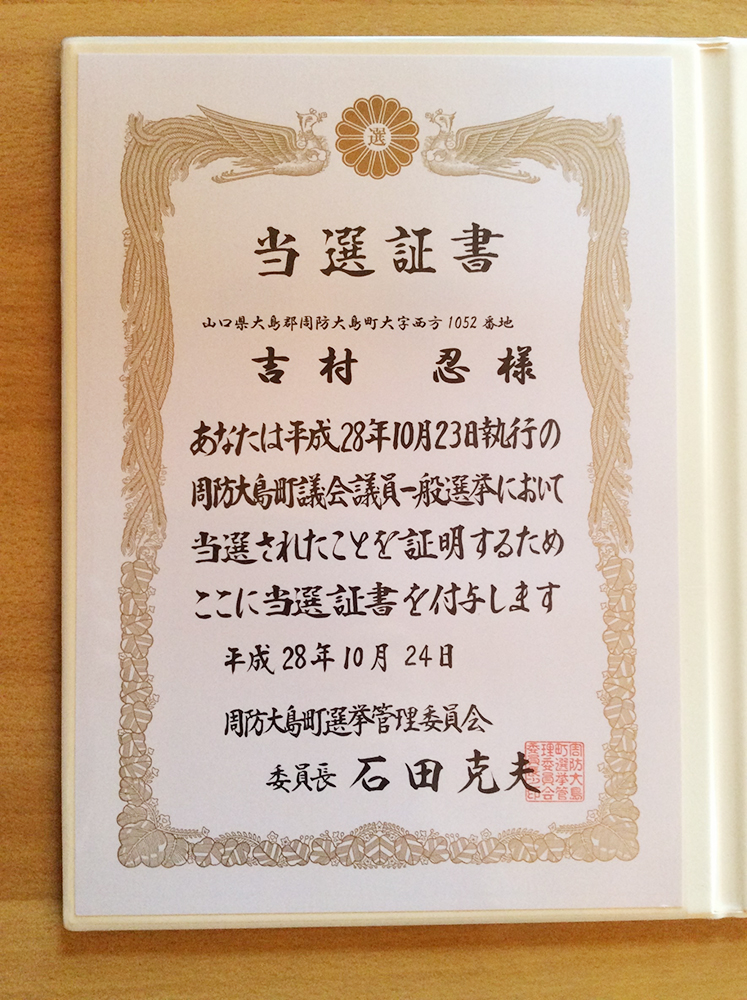 選
当選証書
山口県大島郡周防大島町大字西方1052番地
吉村 忍様
あなたは平成28年10月23日執行の
周防大島町議会議員一般選挙において
当選されたことを証明するため
ここに当選証書を付与します
平成28年10月24日
周防大島町選挙管理委員会
委員長 石田克夫
周防大島
町選挙管
理委員会